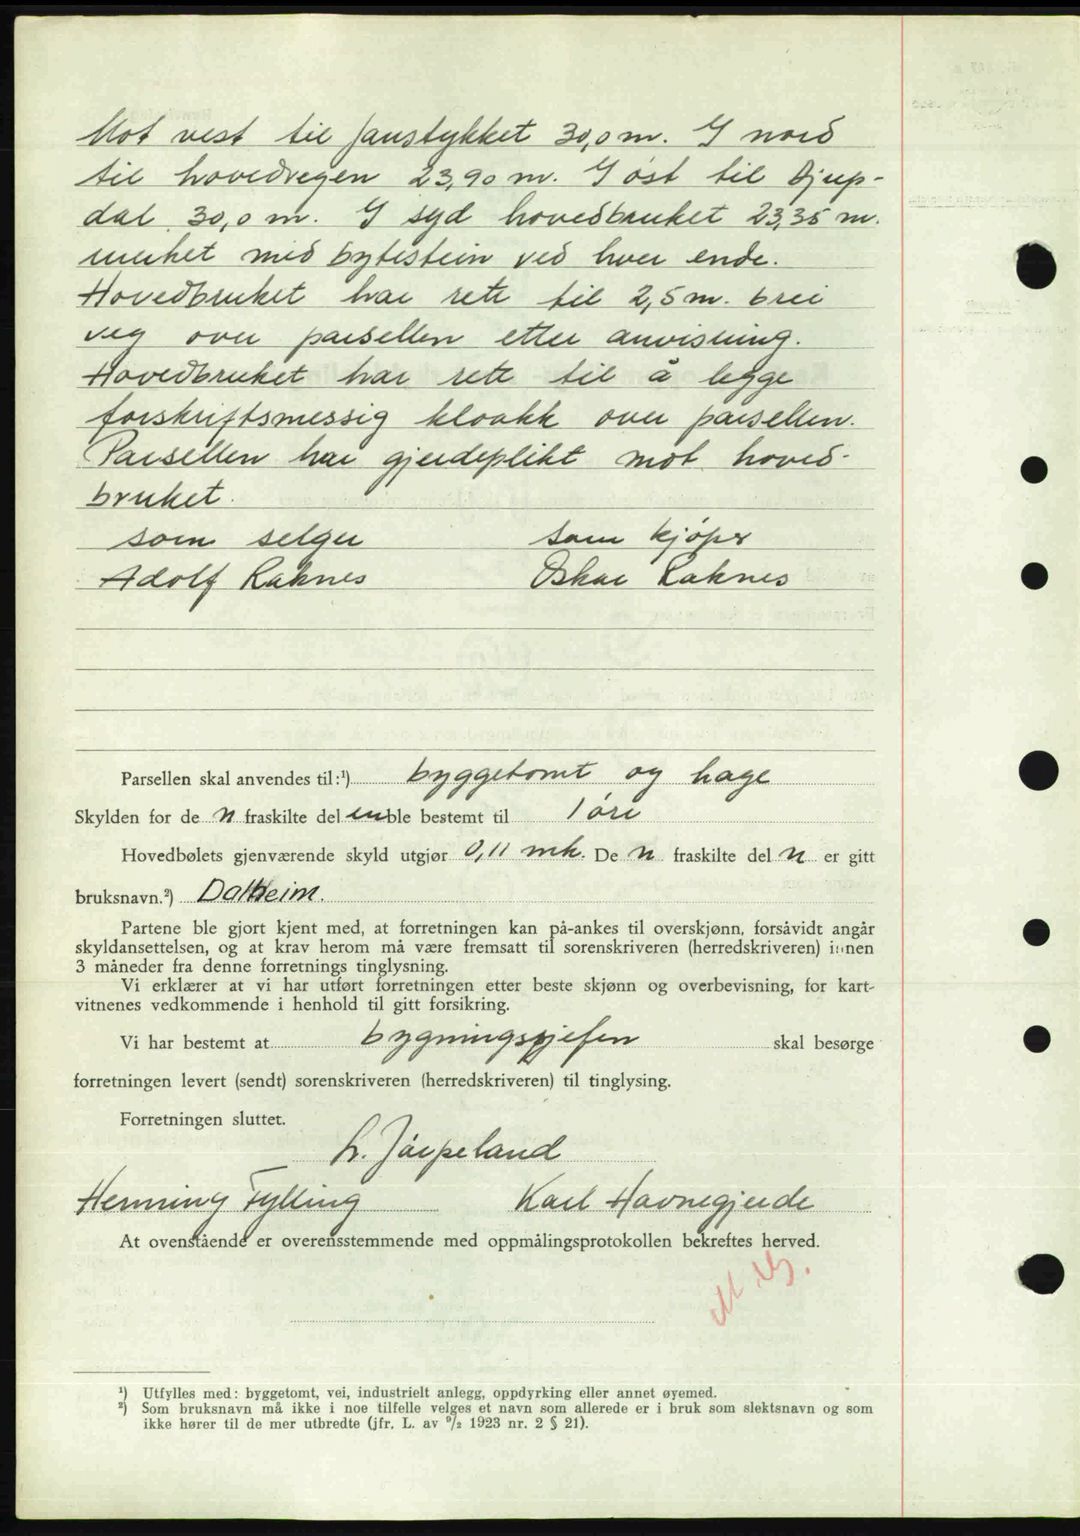 Mot vest til Janstykket 30,0 m. I nord
til hovedvegen 23,90 m. I øst til Djup-
dal 30,0 m. I syd hovedbruket 23,35 m.
merket med bytestein ved hver ende.
Hovedbruket har rett til 2,5 m. brei
veg over parsellen etter anvisning.
Hovedbruket har rett til å legge
forskriftsmessig kloakk over parsellen.
Parsellen har gjerdeplikt mot hoved-
bruket.
som selger som kjøper
Adolf Raknes Oskar Raknes
Parsellen skal anvendes til:¹) byggetomt og hage
Skylden for de n fraskilte del en ble bestemt til 1 øre
Hovedbølets gjenværende skyld utgjør 0,11 mk. De n fraskilte del n er gitt
bruksnavn.²) Dalheim.
Partene ble gjort kjent med, at forretningen kan på-ankes til overskjønn, forsåvidt angår
skyldansettelsen, og at krav herom må være fremsatt til sorenskriveren (herredskriveren) innen
3 måneder fra denne forretnings tinglysning.
Vi erklærer at vi har utført forretningen etter beste skjønn og overbevisning, for kart-
vitnenes vedkommende i henhold til gitt forsikring.
Vi har bestemt at bygningssjefen skal besørge
forretningen levert (sendt) sorenskriveren (herredskriveren) til tinglysing.
Forretningen sluttet.
L. Jørpeland
Henning Fylling Karl Havnegjerde
At ovenstående er overensstemmende med oppmålingsprotokollen bekreftes herved.
¹) Utfylles med: byggetomt, vei, industrielt anlegg, oppdyrking eller annet øyemed.
²) Som bruksnavn må ikke i noe tilfelle velges et navn som allerede er i bruk som slektsnavn og som
ikke hører til de mer utbredte (jfr. L. av ⁹/₂ 1923 nr. 2 § 21).